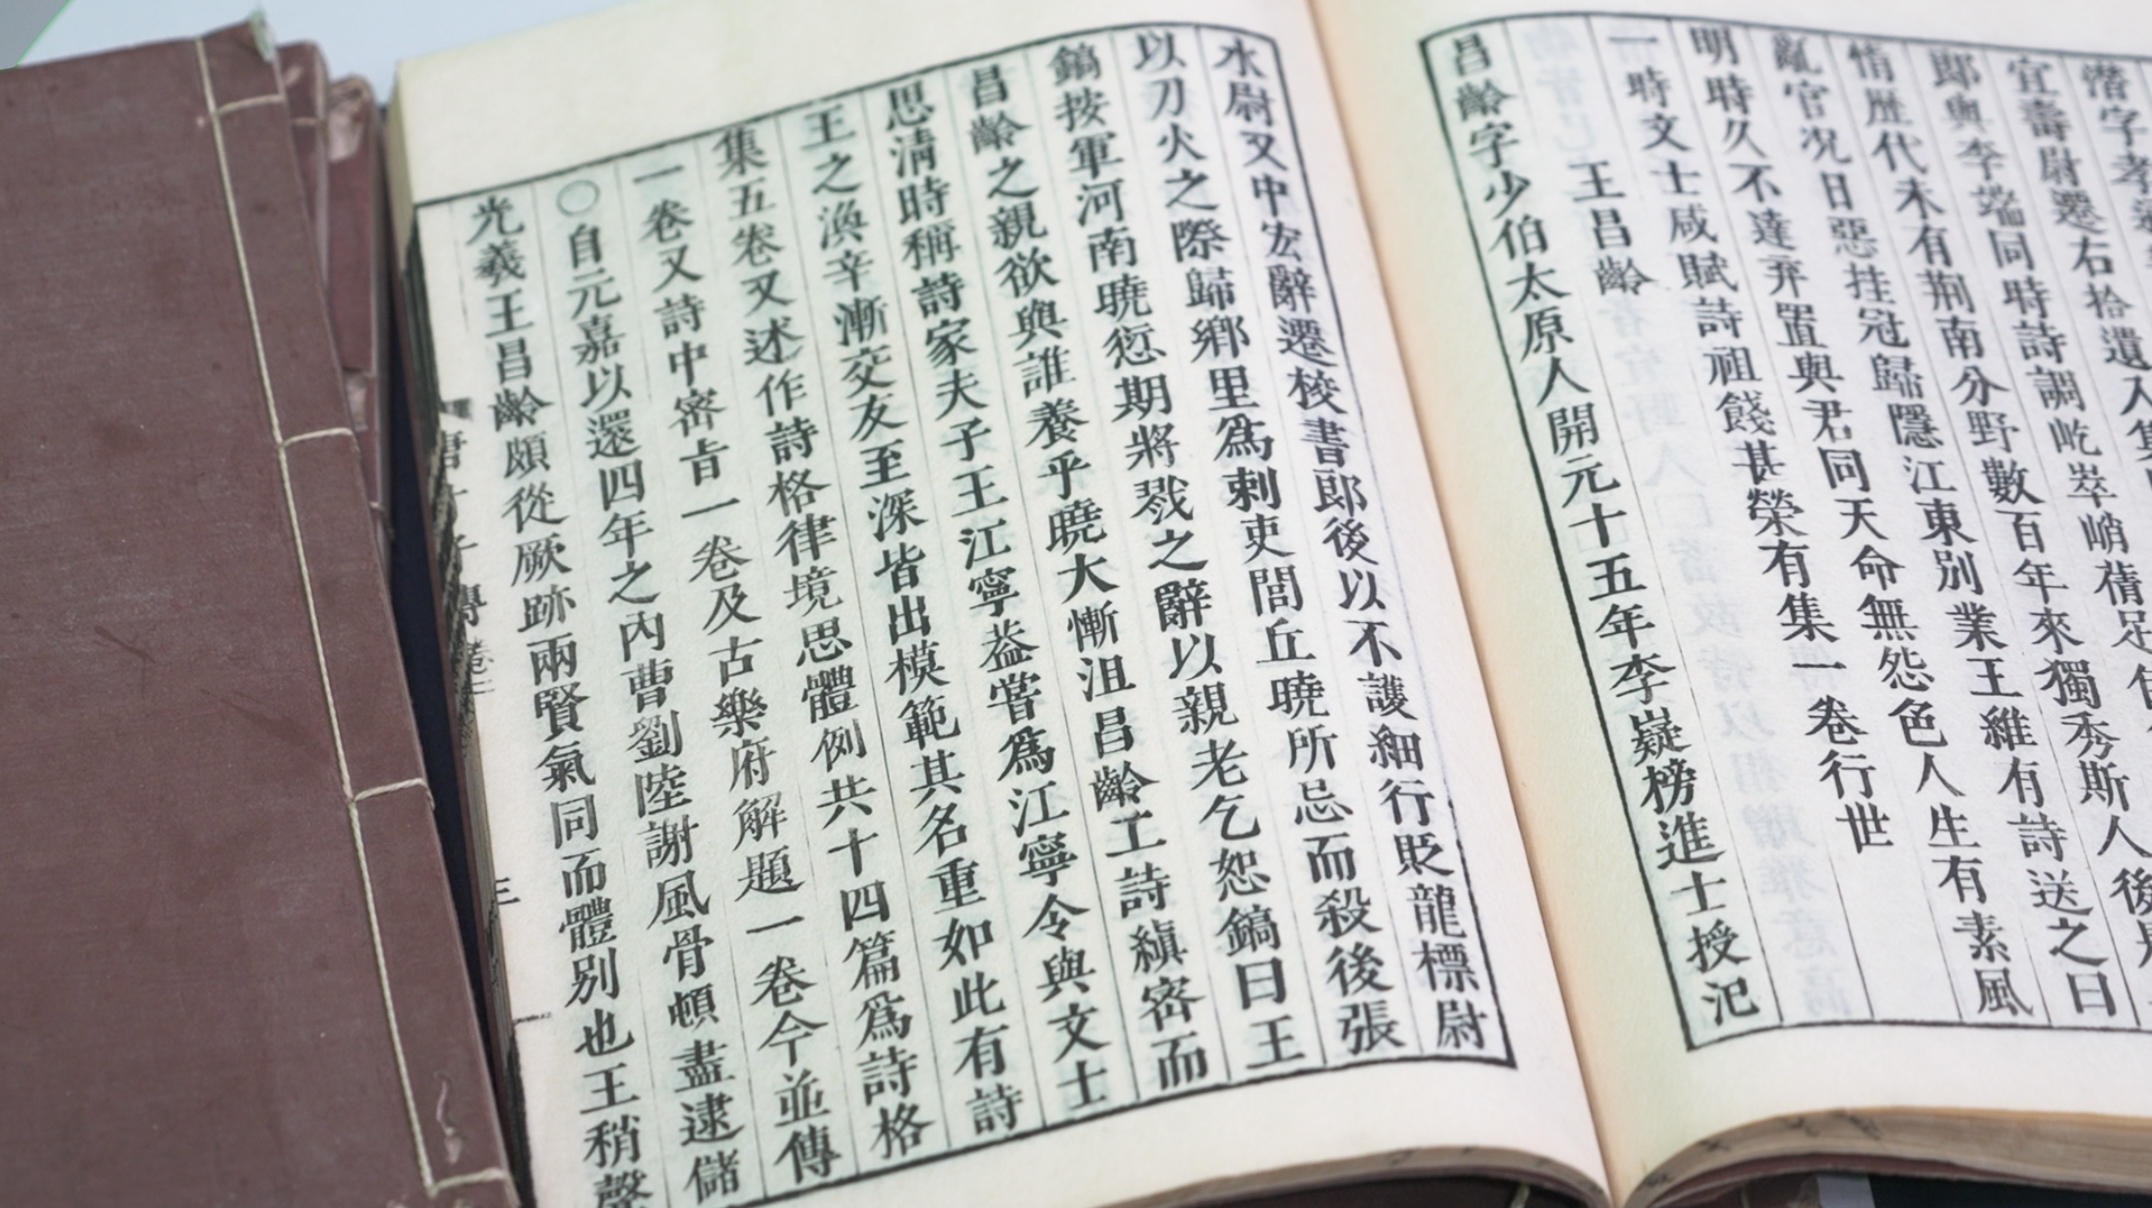 潛字孝
宜壽尉遷右拾遺入集
郎與李端同時詩調屹崒峭蒨足佳
情歷代未有荊南分野數百年來獨秀斯人後
亂官況日惡挂冠歸隱江東別業王維有詩送之曰
明時久不達弃置與君同天命無怨色人生有素風
一時文士咸賦詩祖餞甚榮有集一卷行世
王昌齡
昌齡字少伯太原人開元十五年李嶷榜進士授汜
水尉又中宏辭遷校書郎後以不護細行貶龍標尉
以刀火之際歸鄉里爲刺吏閭丘曉所忌而殺後張
鎬按軍河南曉愆期將戮之辭以親老乞恕鎬曰王
昌齡之親欲與誰養乎曉大慚沮昌齡工詩縝密而
思清時稱詩家夫子王江寧葢嘗爲江寧令與文士
王之渙辛漸交友至深皆出模範其名重如此有詩
集五卷又述作詩格律境思體例共十四篇爲詩格
一卷又詩中密旨一卷及古樂府解題一卷今並傳
○自元嘉以還四年之內曹劉陸謝風骨頓盡逮儲
光羲王昌齡頗從厥跡兩賢氣同而體別也王稍聲